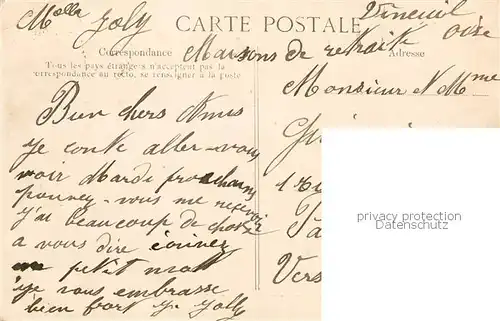 Melle Joly
CARTE POSTALE
Vineuil
oise
Correspondance
Maisons de retraite
Adresse
Tous les pays étrangers n'acceptent pas la
correspondance au recto, se renseigner à la poste
Monsieur N Mme
Bien chers Amis
je conte aller-vous
voir Mardi prochain
pouvez-vous me recevoir
j'ai beaucoup de chose
a vous dire
un petit mot
je vous embrasse
bien fort
Vers
privacy protection
Datenschutz